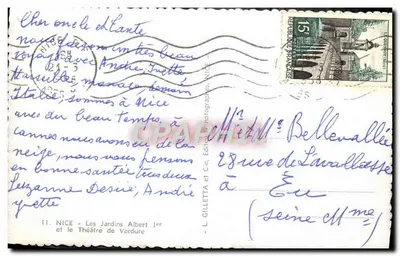 Cher oncle et tante
nous faisons un très beau
voyage avec André Yvette
Marseille, Monaco, demain
Italie, sommes à Nice
avec du beau temps, à
cannes nous avons eu de la
neige, nous nous pensons
en bonne santé tous deux
Suzanne André
yvette
11. NICE - Les Jardins Albert 1er
et le Théâtre de Verdure
L. GILLETTA et Cie,
NICE
15F
Mr et Mme Bellevallée
28 rue de Lavallasse
à Eu
(Seine Mme)